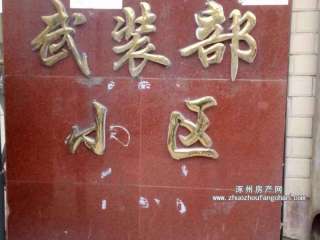 武装部
小区
涿州房产网
www.zhuozhoufangchan.com